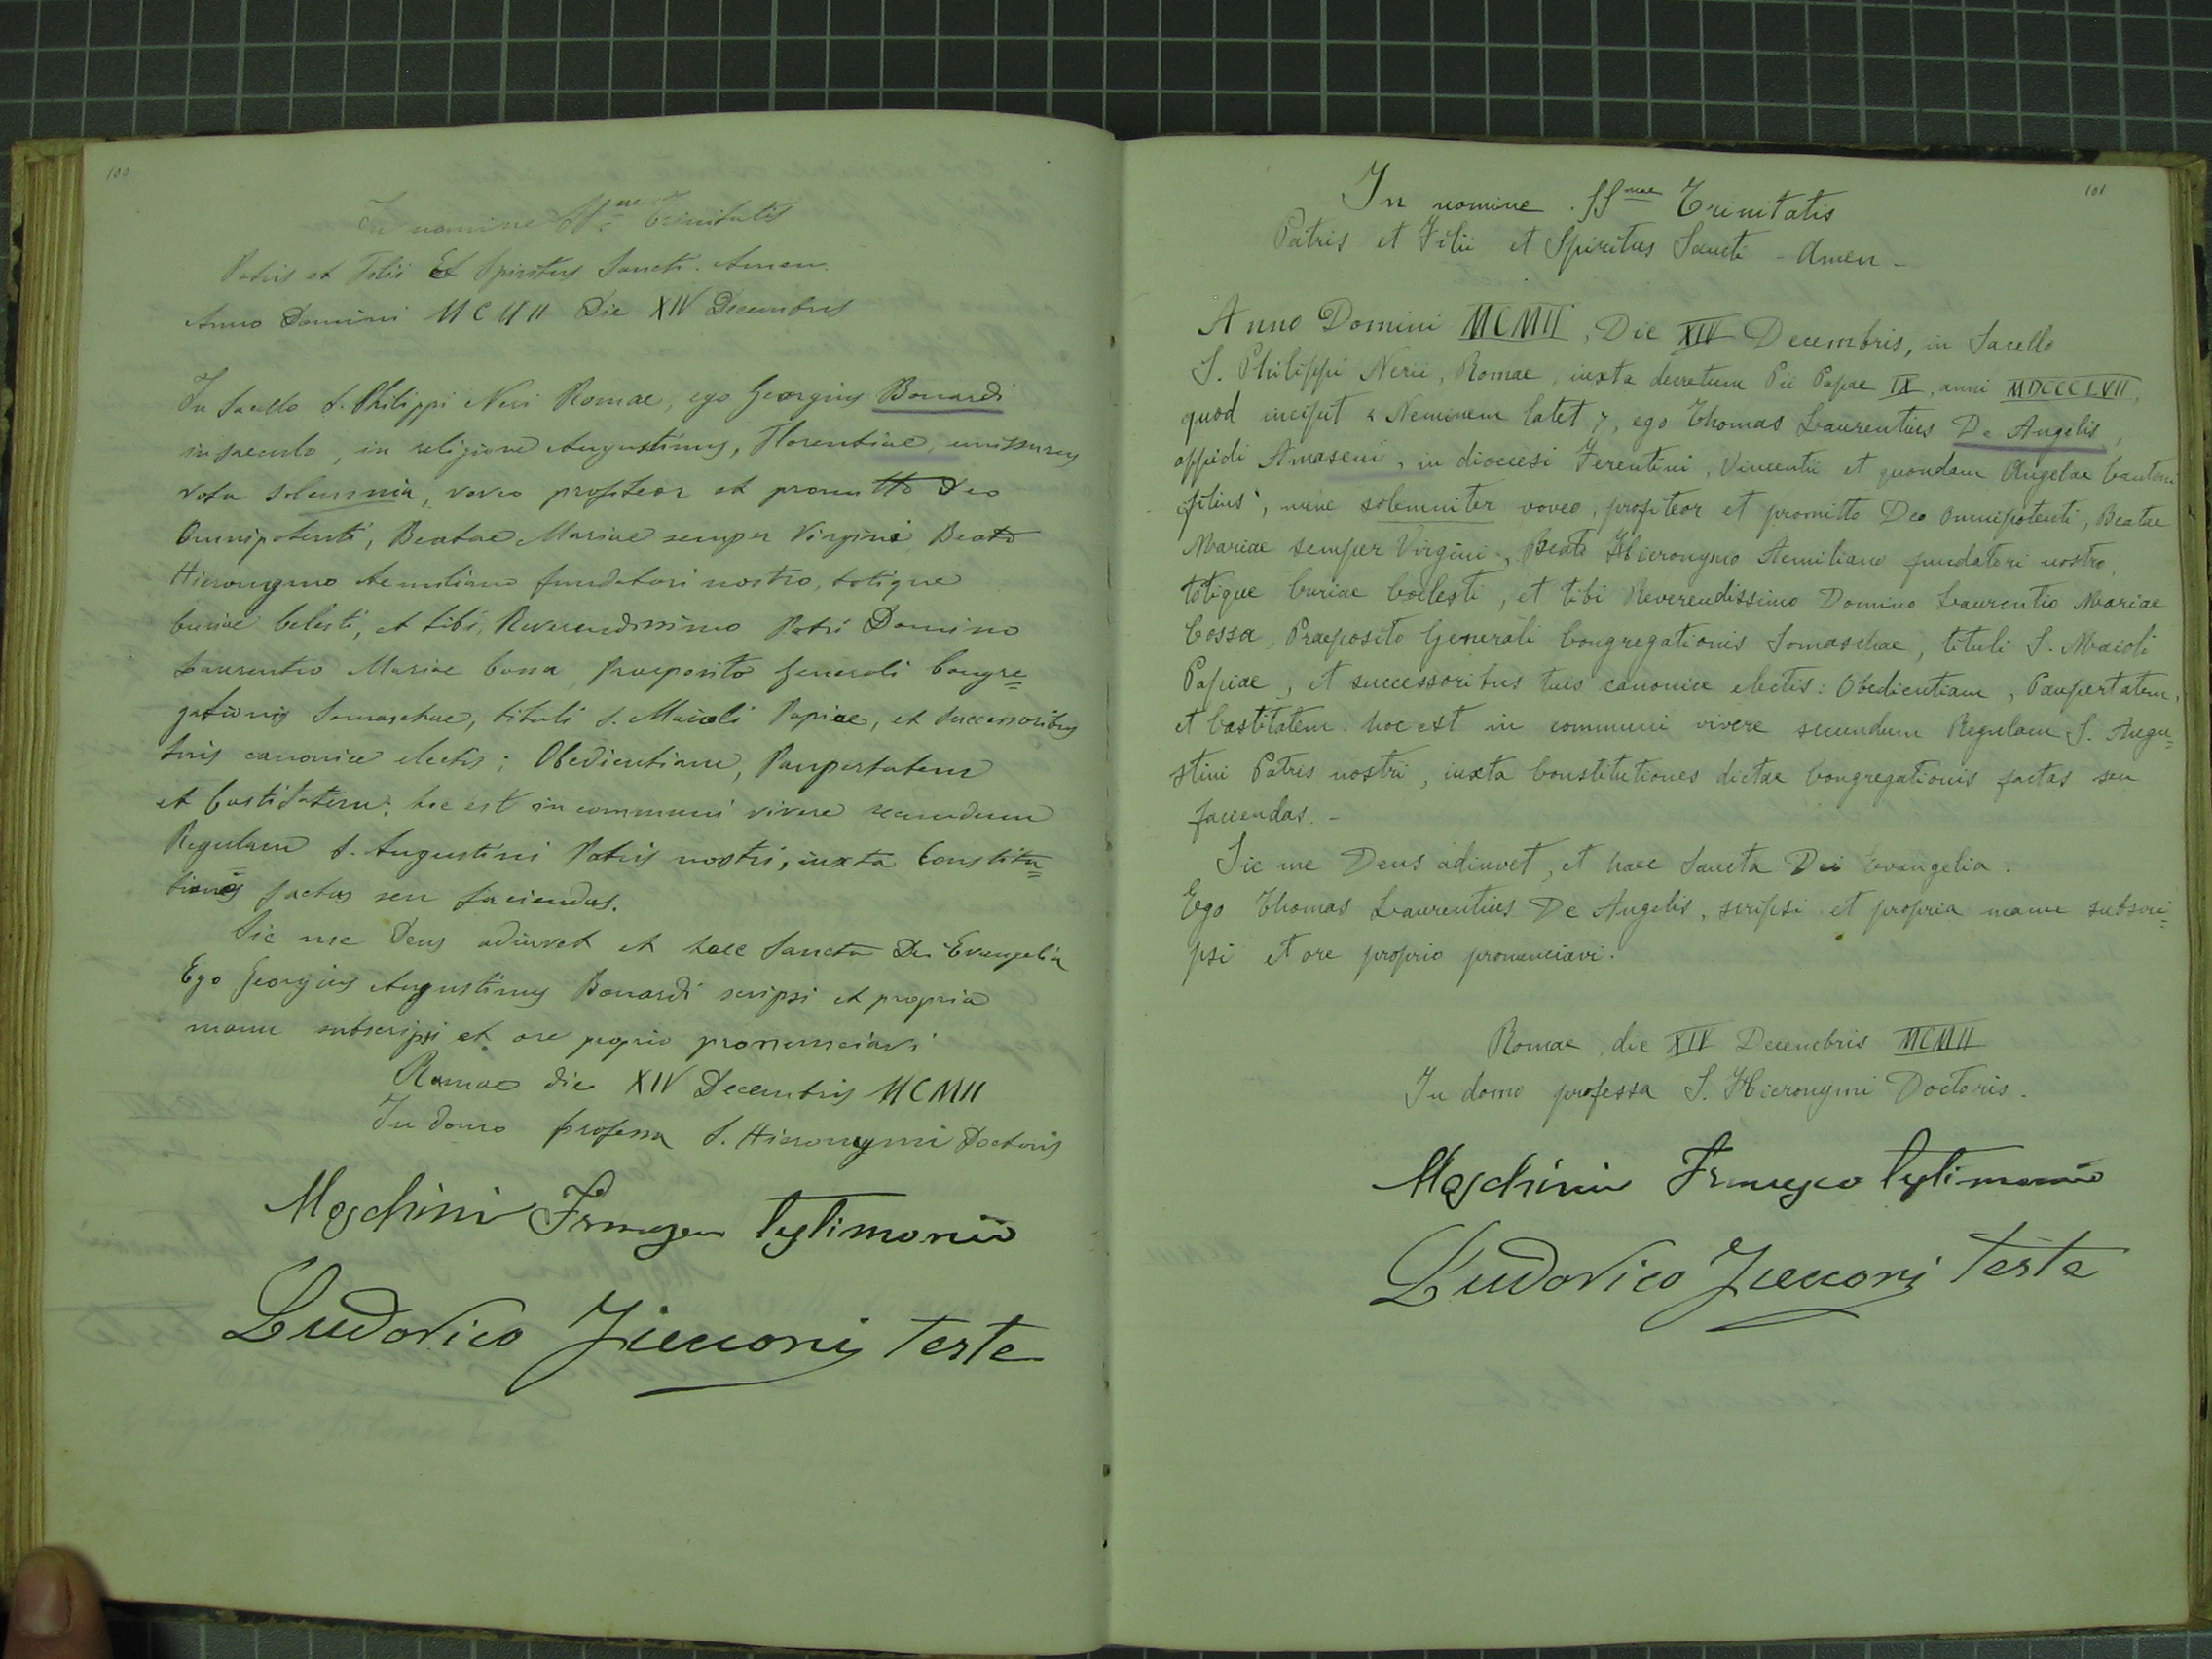 100
In nomine SS.mae Trinitatis
Patris et Filii Et Spiritus Sancti. Amen.
Anno Domini MCMII Die XIV Decembris
In Sacello S. Philippi Neri Romae, ego Georgius Bonardi
in saeculo, in religione Augustinus, Florentiae, emissurus
vota solemnia, voveo profiteor et promitto Deo
Omnipotenti, Beatae Mariae semper Virgini Beato
Hieronymo Aemiliano fundatori nostro, totique
Curiae Celesti, et tibi, Reverendissimo Patri Domino
Laurentio Mariae Cossa Praeposito Generali Congre=
gationis Somaschae, tituli S. Maioli Papiae, et Successoribus
tuis canonice electis; Obedientiam, Paupertatem
et Castitatem: hoc est in communi vivere secundum
Regulam S. Augustini Patris nostri, iuxta Constitu=
tiones factas seu faciendas.
Sic me Deus adiuvet et haec Sancta Dei Evangelia
Ego Georgius Augustinus Bonardi scripsi et propria
manu subscripsi et ore proprio pronunciavi
Romae die XIV Decembris MCMII
In domo professa S. Hieronymi Doctoris
Moschini Testimonio
Ludovico Zicconi Teste
101
In nomine SSmae Trinitatis
Patris et Filii et Spiritus Sancti - Amen -
Anno Domini MCMII, Die XIV Decembris, in Sacello
S. Philippi Nerii, Romae, iuxta decretum Pii Papae IX, anni MDCCCLVII,
quod incipit « Neminem latet », ego Thomas Laurentius De Angelis,
oppidi Amaseni, in dioecesi Ferentini, Vincentii et quondam Angelae Cantoni
filius, nunc solemniter voveo, profiteor et promitto Deo Omnipotenti, Beatae
Mariae semper Virgini, Beato Hieronymo Aemiliano fundatori nostro,
totique Curiae Coelesti, et tibi Reverendissimo Domino Laurentio Mariae
Cossa, Praeposito Generali Congregationis Somaschae, tituli S. Maioli
Papiae, et successoribus tuis canonice electis: Obedientiam, Paupertatem,
et Castitatem. hoc est in communi vivere secundum Regulam S. Augu=
stini Patris nostri, iuxta Constitutiones dictae Congregationis factas seu
faciendas. -
Sic me Deus adiuvet, et haec Sancta Dei Evangelia.
Ego Thomas Laurentius De Angelis, scripsi et propria manu subscri=
psi et ore proprio pronunciavi.
Romae, die XIV Decembris MCMII
In domo professa S. Hieronymi Doctoris.
Moschini Testimonio
Ludovico Zicconi Teste